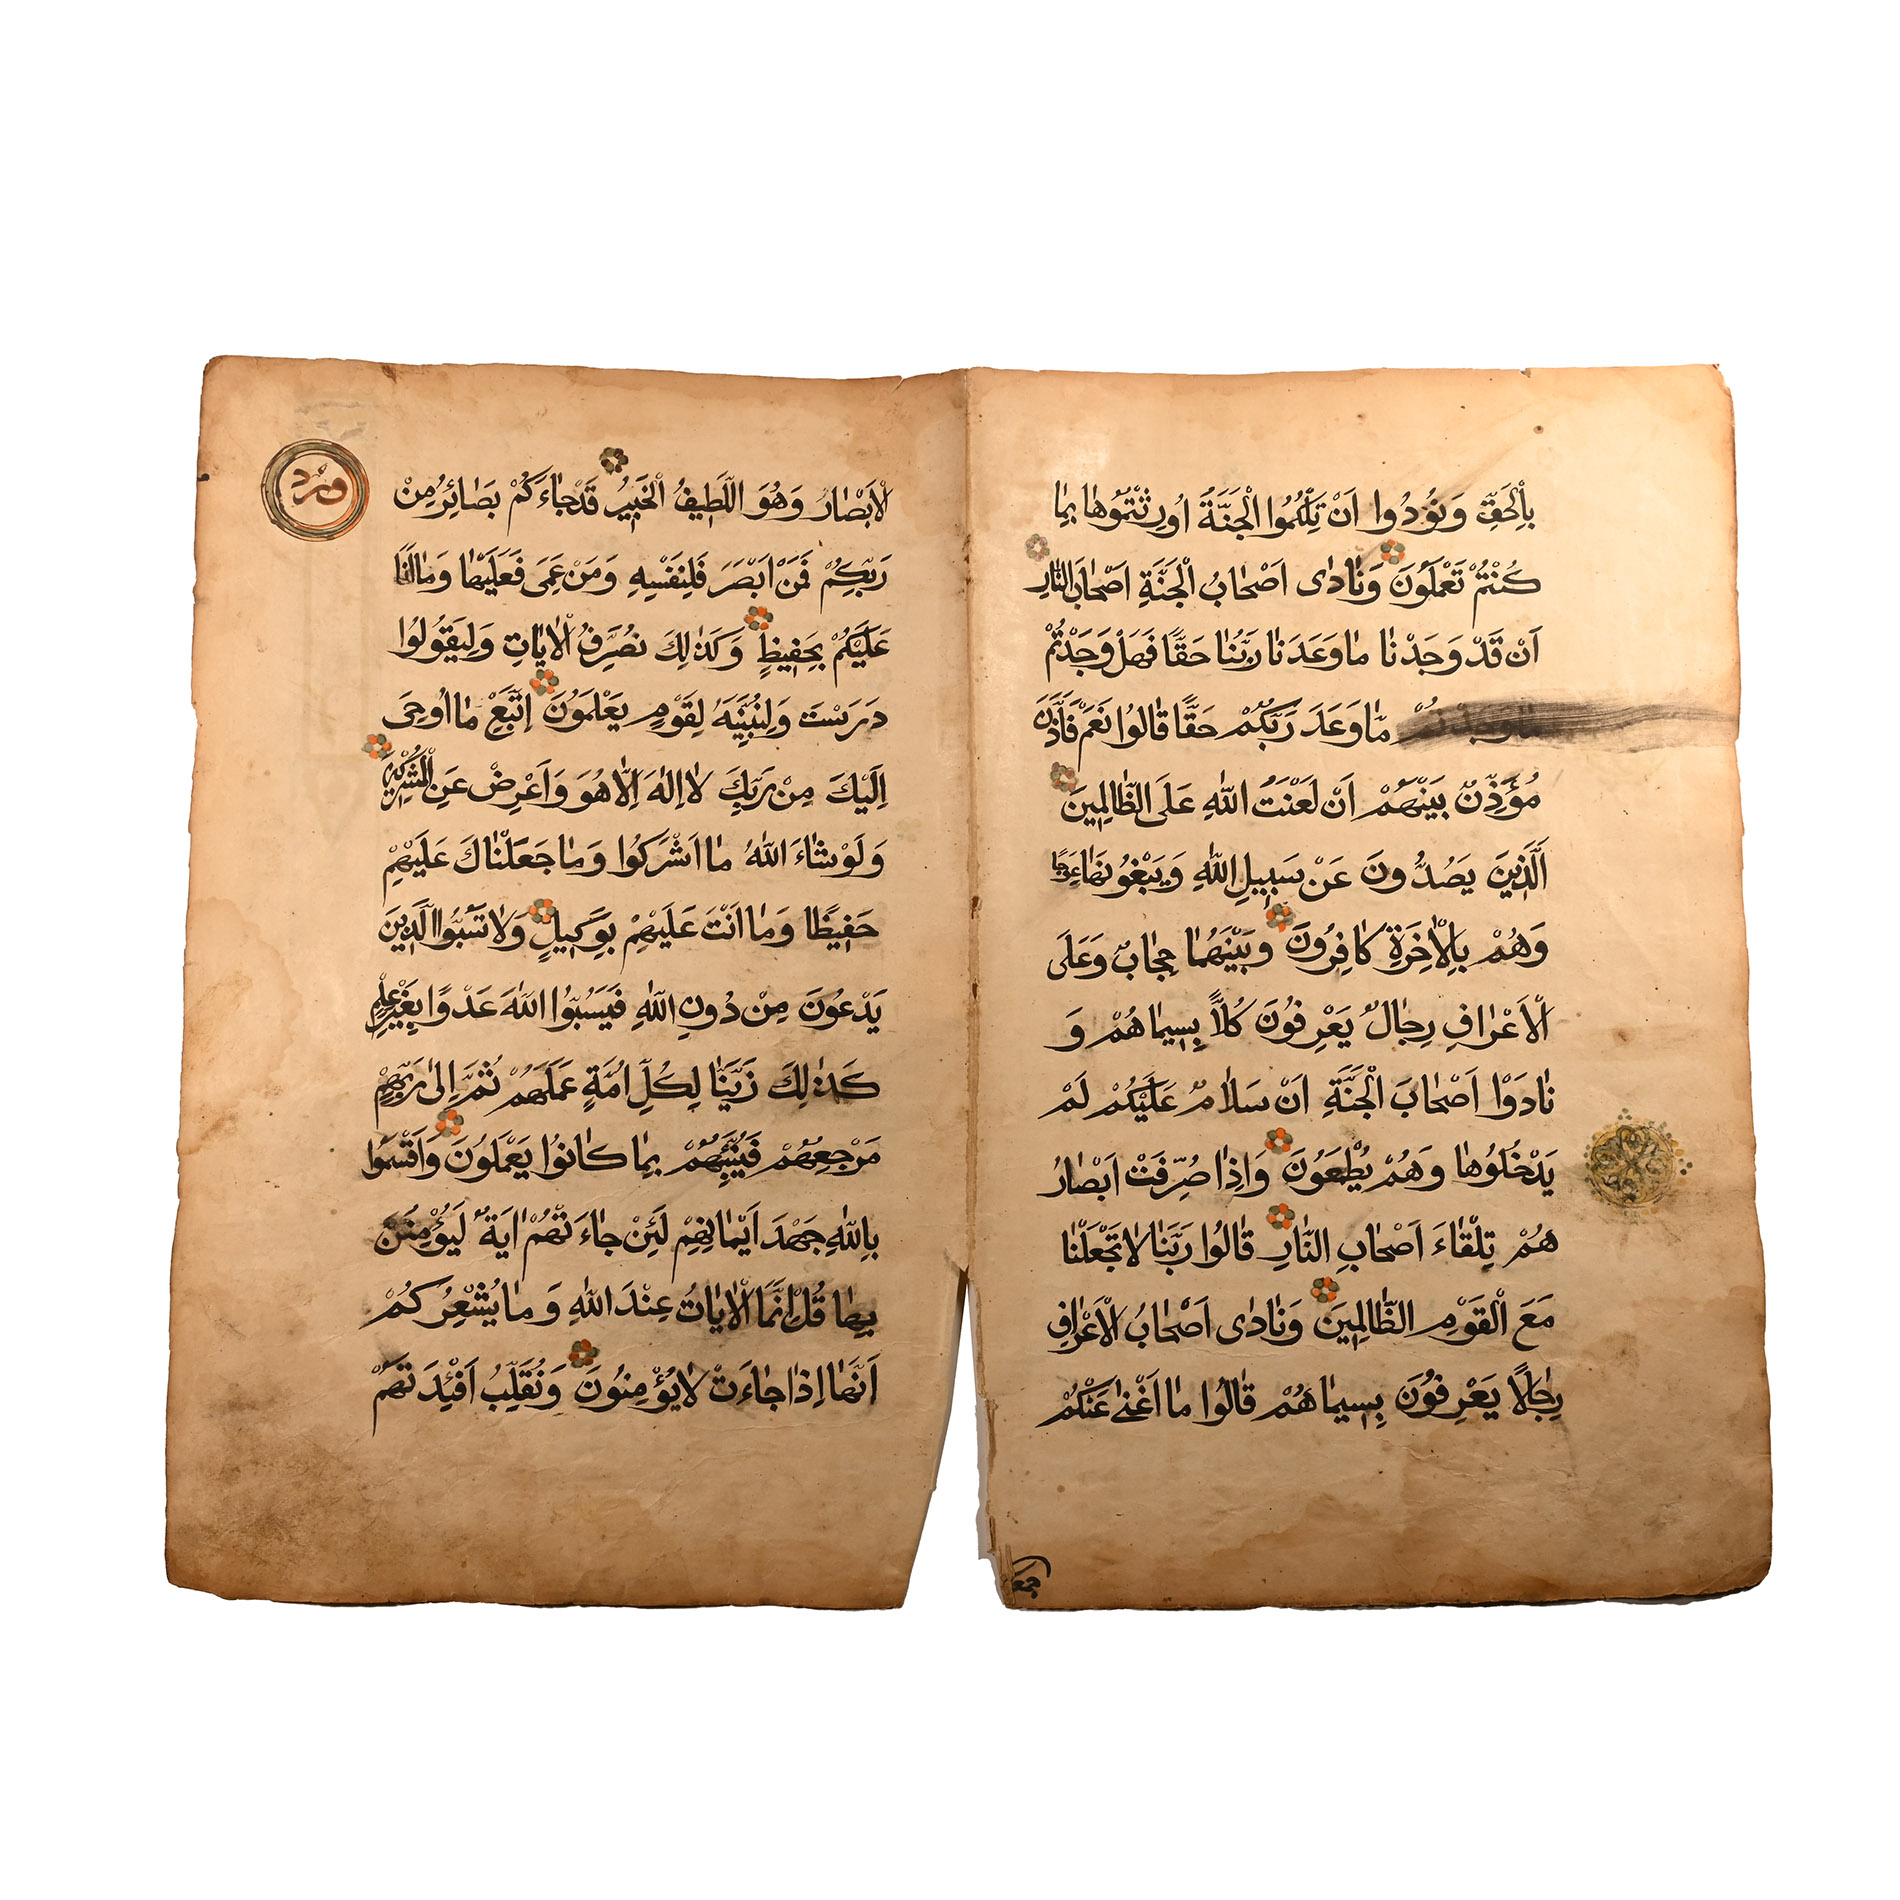 بِالْحَقِّ وَنُودُوا اَنْ تِلْكُمُوا الْجَنَّةُ اُورِثْتُمُوهَا بِمَا
كُنْتُمْ تَعْمَلُونَ وَنَادٰى اَصْحَابُ الْجَنَّةِ اَصْحَابَ النَّارِ
اَنْ قَدْ وَجَدْنَا مَا وَعَدَنَا رَبُّنَا حَقًّا فَهَلْ وَجَدْتُمْ
مَا وَعَدَ رَبُّكُمْ حَقًّا قَالُوا نَعَمْ فَاَذَّنَ
مُؤَذِّنٌ بَيْنَهُمْ اَنْ لَعْنَتُ اللّٰهِ عَلَى الظَّالِمِينَ
اَلَّذِينَ يَصُدُّونَ عَنْ سَبِيلِ اللّٰهِ وَيَبْغُونَهَا عِوَجًا
وَهُمْ بِالْاٰخِرَةِ كَافِرُونَ وَبَيْنَهُمَا حِجَابٌ وَعَلَى
الْاَعْرَافِ رِجَالٌ يَعْرِفُونَ كُلًّا بِسِيمَاهُمْ وَ
نَادَوْا اَصْحَابَ الْجَنَّةِ اَنْ سَلَامٌ عَلَيْكُمْ لَمْ
يَدْخُلُوهَا وَهُمْ يُطْمَعُونَ وَاِذَا صُرِفَتْ اَبْصَارُ
هُمْ تِلْقَاءَ اَصْحَابِ النَّارِ قَالُوا رَبَّنَا لَا تَجْعَلْنَا
مَعَ الْقَوْمِ الظَّالِمِينَ وَنَادٰى اَصْحَابُ الْاَعْرَافِ
رِجَالًا يَعْرِفُونَ بِسِيمَاهُمْ قَالُوا مَا اَغْنٰى عَنْكُمْ
جمعكم
ورد
الْاَبْصَارُ وَهُوَ اللَّطِيفُ الْخَبِيرُ قَدْ جَاءَكُمْ بَصَائِرُ مِنْ
رَبِّكُمْ فَمَنْ اَبْصَرَ فَلِنَفْسِهِ وَمَنْ عَمِيَ فَعَلَيْهَا وَمَا اَنَا
عَلَيْكُمْ بِحَفِيظٍ وَكَذٰلِكَ نُصَرِّفُ الْاٰيَاتِ وَلِيَقُولُوا
دَرَسْتَ وَلِنُبَيِّنَهُ لِقَوْمٍ يَعْلَمُونَ اِتَّبِعْ مَا اُوحِيَ
اِلَيْكَ مِنْ رَبِّكَ لَا اِلٰهَ اِلَّا هُوَ وَاَعْرِضْ عَنِ الْمُشْرِكِينَ
وَلَوْ شَاءَ اللّٰهُ مَا اَشْرَكُوا وَمَا جَعَلْنَاكَ عَلَيْهِمْ
حَفِيظًا وَمَا اَنْتَ عَلَيْهِمْ بِوَكِيلٍ وَلَا تَسُبُّوا الَّذِينَ
يَدْعُونَ مِنْ دُونِ اللّٰهِ فَيَسُبُّوا اللّٰهَ عَدْوًا بِغَيْرِ عِلْمٍ
كَذٰلِكَ زَيَّنَّا لِكُلِّ اُمَّةٍ عَمَلَهُمْ ثُمَّ اِلٰى رَبِّهِمْ
مَرْجِعُهُمْ فَيُنَبِّئُهُمْ بِمَا كَانُوا يَعْمَلُونَ وَاَقْسَمُوا
بِاللّٰهِ جَهْدَ اَيْمَانِهِمْ لَئِنْ جَاءَتْهُمْ اٰيَةٌ لَيُؤْمِنُنَّ
بِهَا قُلْ اِنَّمَا الْاٰيَاتُ عِنْدَ اللّٰهِ وَمَا يُشْعِرُكُمْ
اَنَّهَا اِذَا جَاءَتْ لَا يُؤْمِنُونَ وَنُقَلِّبُ اَفْئِدَتَهُمْ